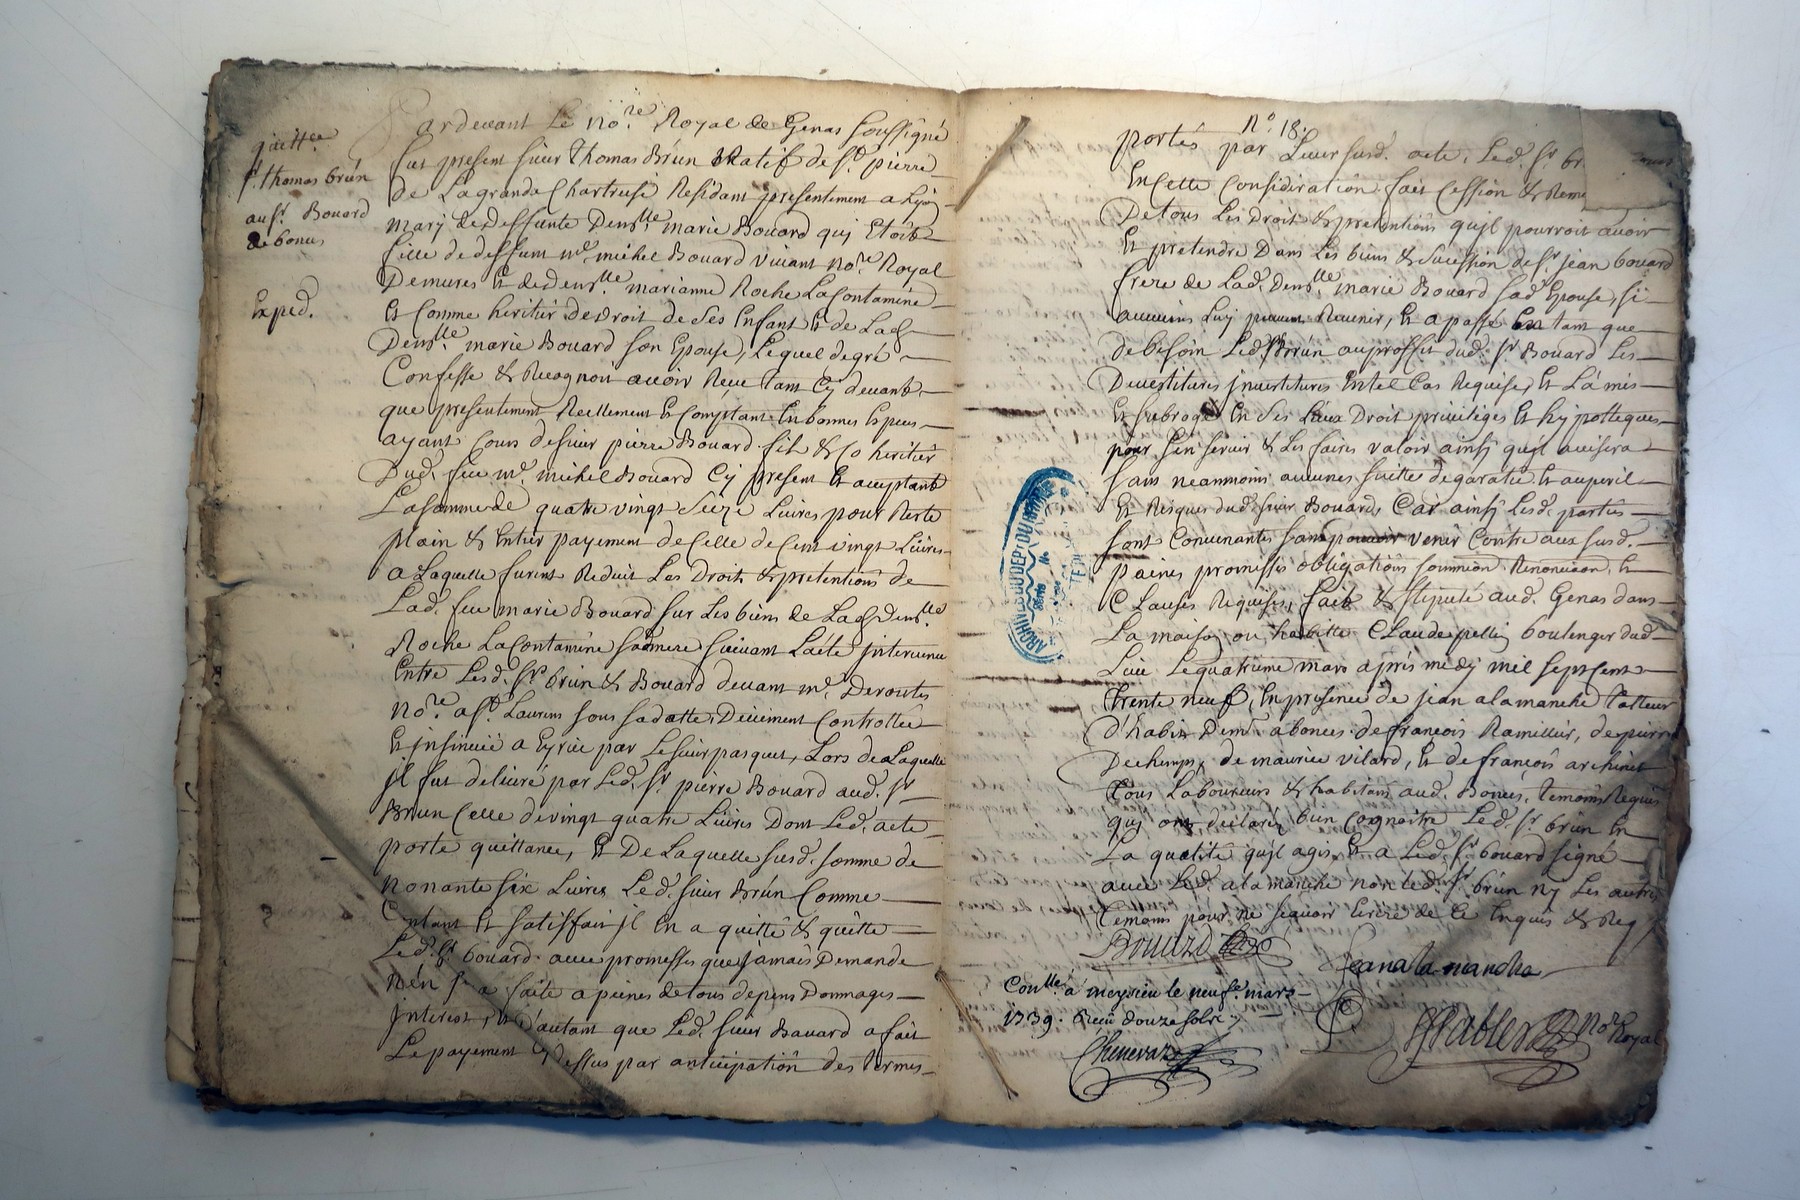 quitt.ce
s.r thomas brún
au s.r Bouard
de bonus
Exped.
Pardevant Le no.re Royal de Genas soussigné
fut present sieur thomas Brún natif de S.t pierre
de La grande Chartreuse Residant presentement a Lyon
mary de deffunte Dem.lle marie Bouard quy Etoit
fille de deffunt m.e michel Bouard vivant no.re Royal
Demures Et de dem.lle marianne Roche La Contamine
Et Comme heritier de Droit de ses Enfant Et de Lad.
Dem.lle marie Bouard son Epouse, Lequel de gré
Confesse & Recognoit avoir Receu tant Cy devant
que presentement Reellement Et Comptant En bonnes Especes
ayant Cours de sieur pierre Bouard fils & Co heritier
Dud. feu m.e michel Bouard Cy present Et acceptant
La somme de quatre vingt seize Livres pour Reste
plain & Entier payement de Celle de Cent vingt Livres
a Laquelle furent Reduit Les Droits & pretentions de
Lad. feu marie Bouard sur Les biens de Lad. dem.lle
Roche La Contamine sa mere suivant L'acte intervenu
Entre Lesd. s.rs brún & Bouard devant m.e Deroutes
no.re a S.t Laurens sous sa datte, Deüement Controllée
Et insinuée a Eyrieu par Le sieur pasquet, Lors de Laquelle
il fut délivré par Led. s.r pierre Bouard aud. s.r
Brun Celle de vingt quatre Livres Dont Led. acte
porte quittance, Et De Laquelle susd. somme de
nonante six Livres Led. sieur Brún Comme
Contant Et satisffait jl En a quitté & quitte
Led. s.r bouard avec promesses que jamais Demande
n'en sera faite a peines de tous depens Dommages
Interest, Et D'autant que Led. sieur Bouard a fait
Le payement Cy dessus par anticipation des termes
N.o 18.
portés par Leur susd. acte, Led. s.r br
En Cette Consideration fait Cession & Reme
De tous Les Droits & pretentions qu'jl pourroit avoir
Et pretendre Dans Les biens & sucession de s.r jean bouard
frere de Lad. Dem.lle marie Bouard sad. Epouse, si
aucuns Luy peuvent Revenir, Et a passé En tant que
de besoin Led. s.r Brún au proffit dud. s.r Bouard Les
Devestitures jnvestitures En tel Cas Requises, Et L'a mis
Et subrogé En ses Lieux Droit privileges Et hypotteques
pour s'en servir & Les faires valoir ainsy qu'jl avisera
sans neanmoins aucunes suitte de garatie Et au peril
Et Risques dud. sieur Bouard, Car ainsy Lesd. parties
sont Convenantes sans pouvoir venir Contre aux susd.
paines promesses obligations soumission Renonciaon, Et
Clauses Requises, fait & stipulé aud. Genas dans
La maison ou habitte Claude pellin boulenger dud.
Lieu Le quatrieme mars aprés midy mil sept Cent
trente neuf, En presence de jean alamanche tailleur
D'habits Dem.t a bonces de françois Ramillier, de pierre
Dechemps, de maurice vilard, Et de françois archinet
tous Laboureurs & habitans aud. Bonces, temoins Requis
quy ont declarés bien Cognoitre Led. s.r brún En
La qualité qu'jl agis, Et a Led. s.r bouard signé
avec Led. alamanche non Led. s.r brún ny Les autres
temoins pour ne sçavoir Ecrire de Ce Enquis & Req.
Bouard
Jean alamancha
Con.llé á meyzieu le neuf.e mars
1739. Receu douze sols
Chenevaz
no.re Royal
ARCHIVES DU DEPT DU RHÔNE